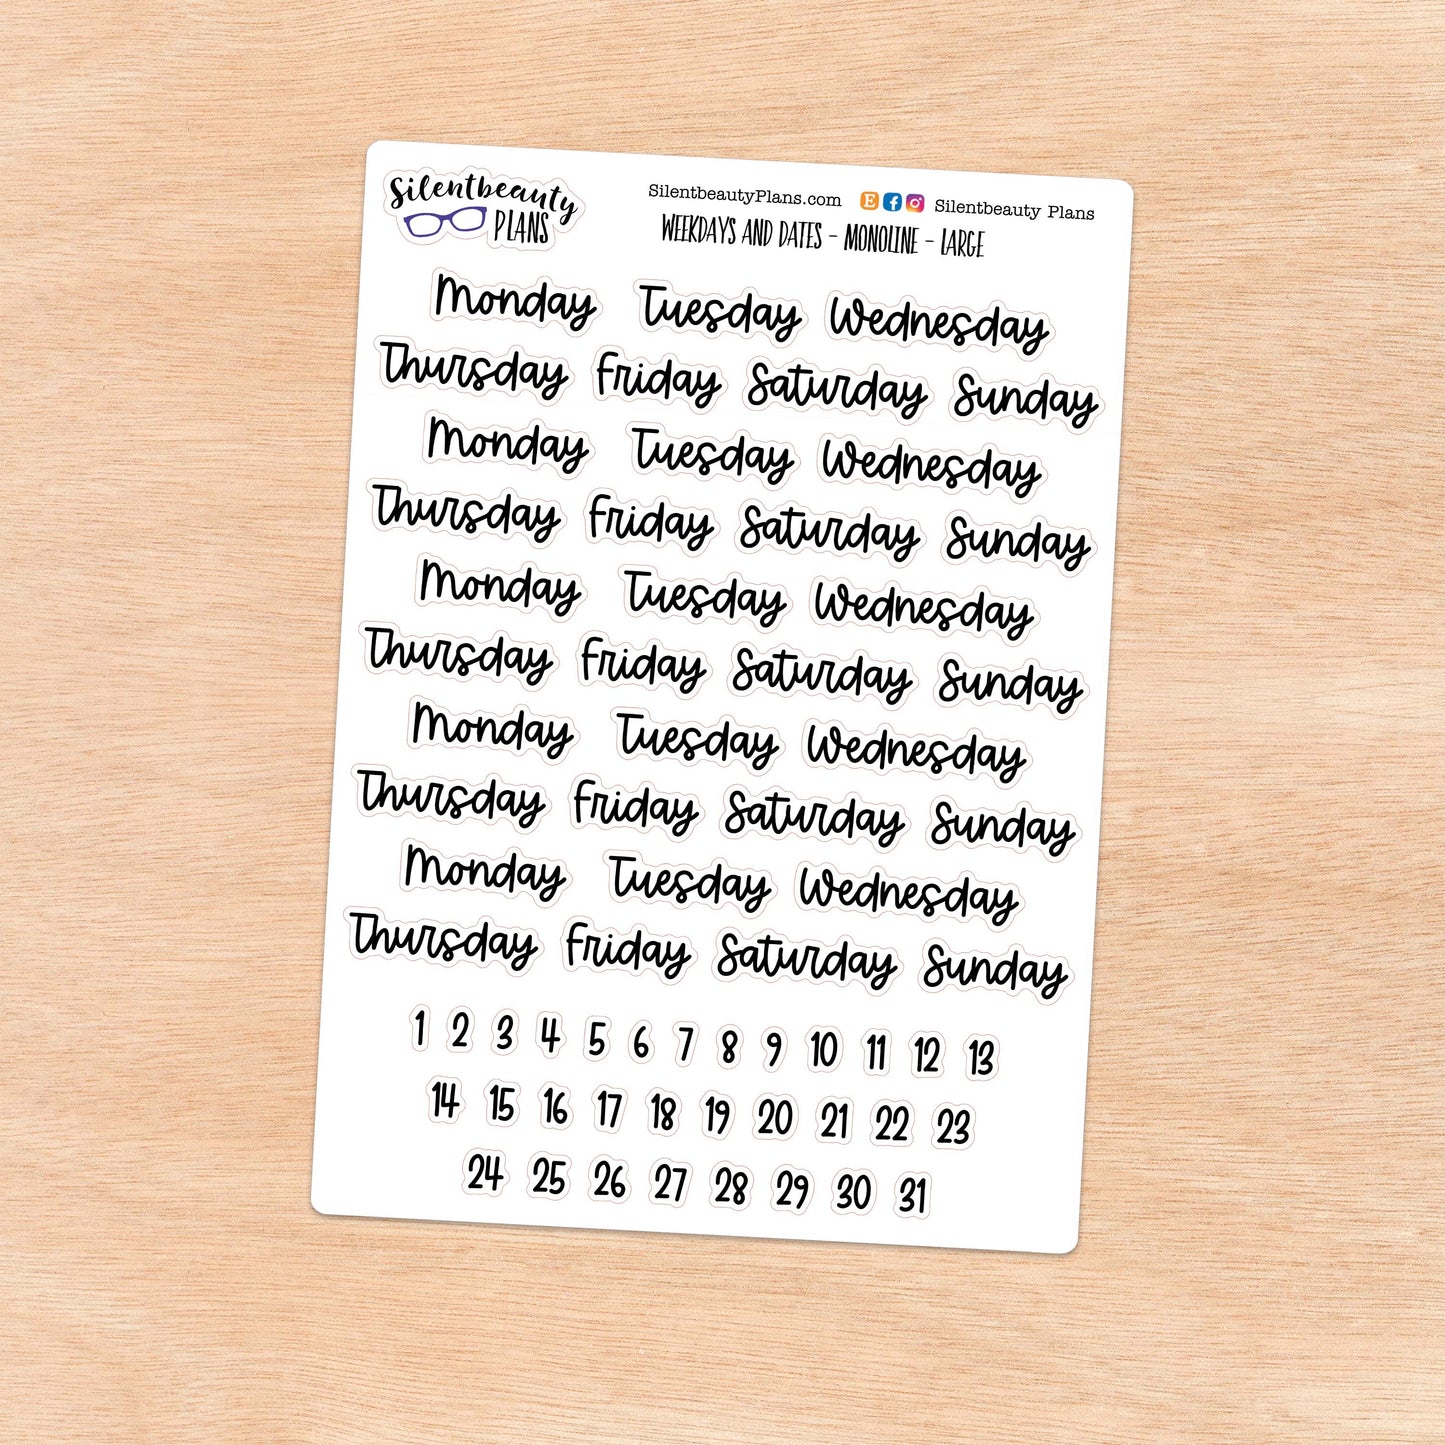 Silentbeauty
PLANS
SilentbeautyPlans.com Silentbeauty Plans
WEEKDAYS AND DATES - MONOLINE - LARGE
Monday Tuesday Wednesday
Thursday Friday Saturday Sunday
Monday Tuesday Wednesday
Thursday Friday Saturday Sunday
Monday Tuesday Wednesday
Thursday Friday Saturday Sunday
Monday Tuesday Wednesday
Thursday Friday Saturday Sunday
Monday Tuesday Wednesday
Thursday Friday Saturday Sunday
1 2 3 4 5 6 7 8 9 10 11 12 13
14 15 16 17 18 19 20 21 22 23
24 25 26 27 28 29 30 31